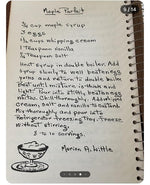 Maple Parfait
3/4 cup maple syrup
3 eggs
1 1/2 cups whipping cream
1 Teaspoon vanilla
1/4 Teaspoon salt
Heat syrup in double boiler. Add
syrup slowly to well beaten egg
yolks and return to double boiler.
Heat until mixture is thick and
light. Let cool, stir in stiffly beaten egg
whites. Chill thoroughly. Add whipped
cream, salt and vanilla to mixture.
Mix thoroughly and pour into
Refrigerator freezing tray. Freeze
without stirring.
8 to 10 servings.
Marion A. Little
9/14